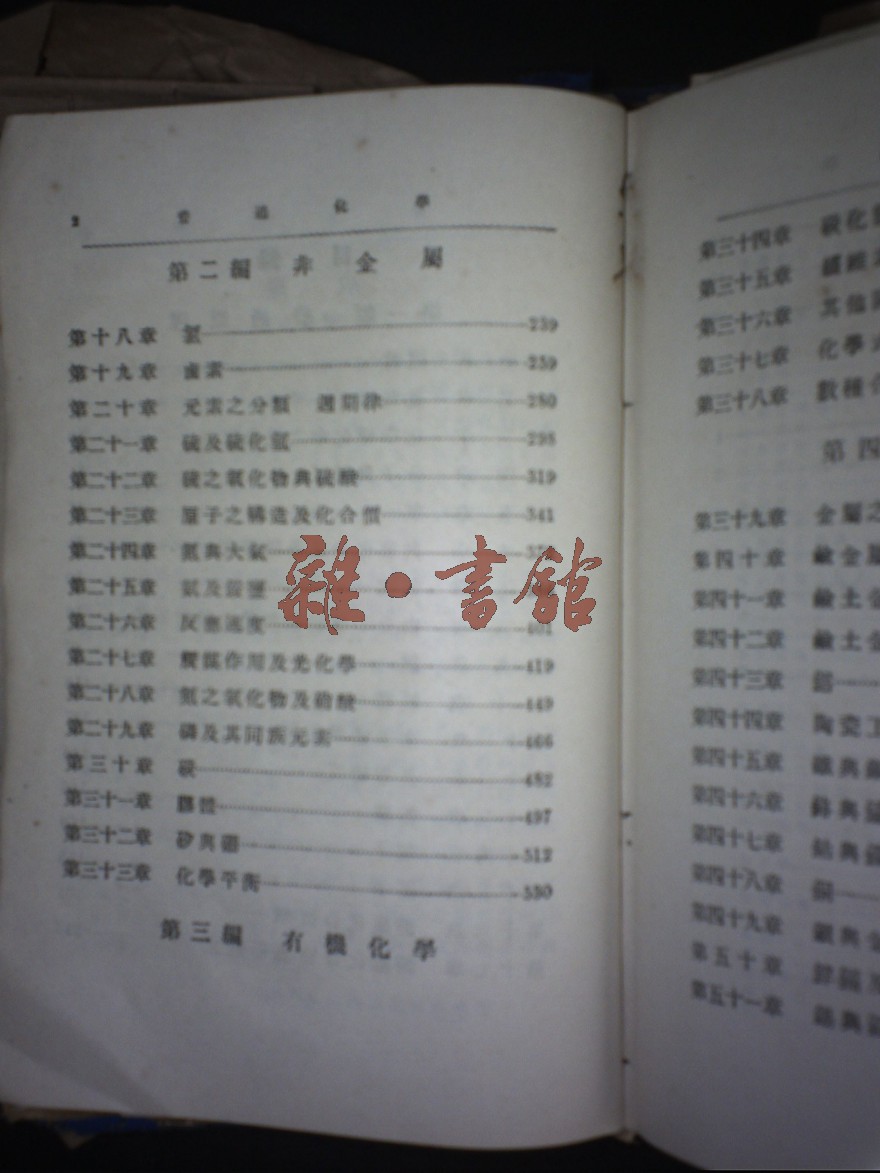 2 普通化學
第二編 非金屬
第十八章 氫 239
第十九章 鹵素 259
第二十章 元素之分類 週期律 280
第二十一章 硫及硫化氫 298
第二十二章 硫之氧化物與硫酸 319
第二十三章 原子之構造及化合價 341
第二十四章 氮與大氣
第二十五章
第二十六章 反應速度 401
第二十七章 作用及光化學 419
第二十八章 氮之氧化物及硝酸 449
第二十九章 磷及其同族元素 466
第三十章 碳 482
第三十一章 膠體 497
第三十二章 矽與硼 512
第三十三章 化學平衡 530
第三編 有機化學
雜·書館
第三十四章 碳化
第三十五章 纖維
第三十六章 其他
第三十七章 化學
第三十八章 數種
第四
第三十九章 金屬之
第四十章 鹼金屬
第四十一章 鹼土金
第四十二章 鹼土金
第四十三章 鋁
第四十四章 陶瓷工
第四十五章 鐵與
第四十六章
第四十七章
第四十八章 銅
第四十九章 銀與金
第五十章 鋅鎘及
第五十一章